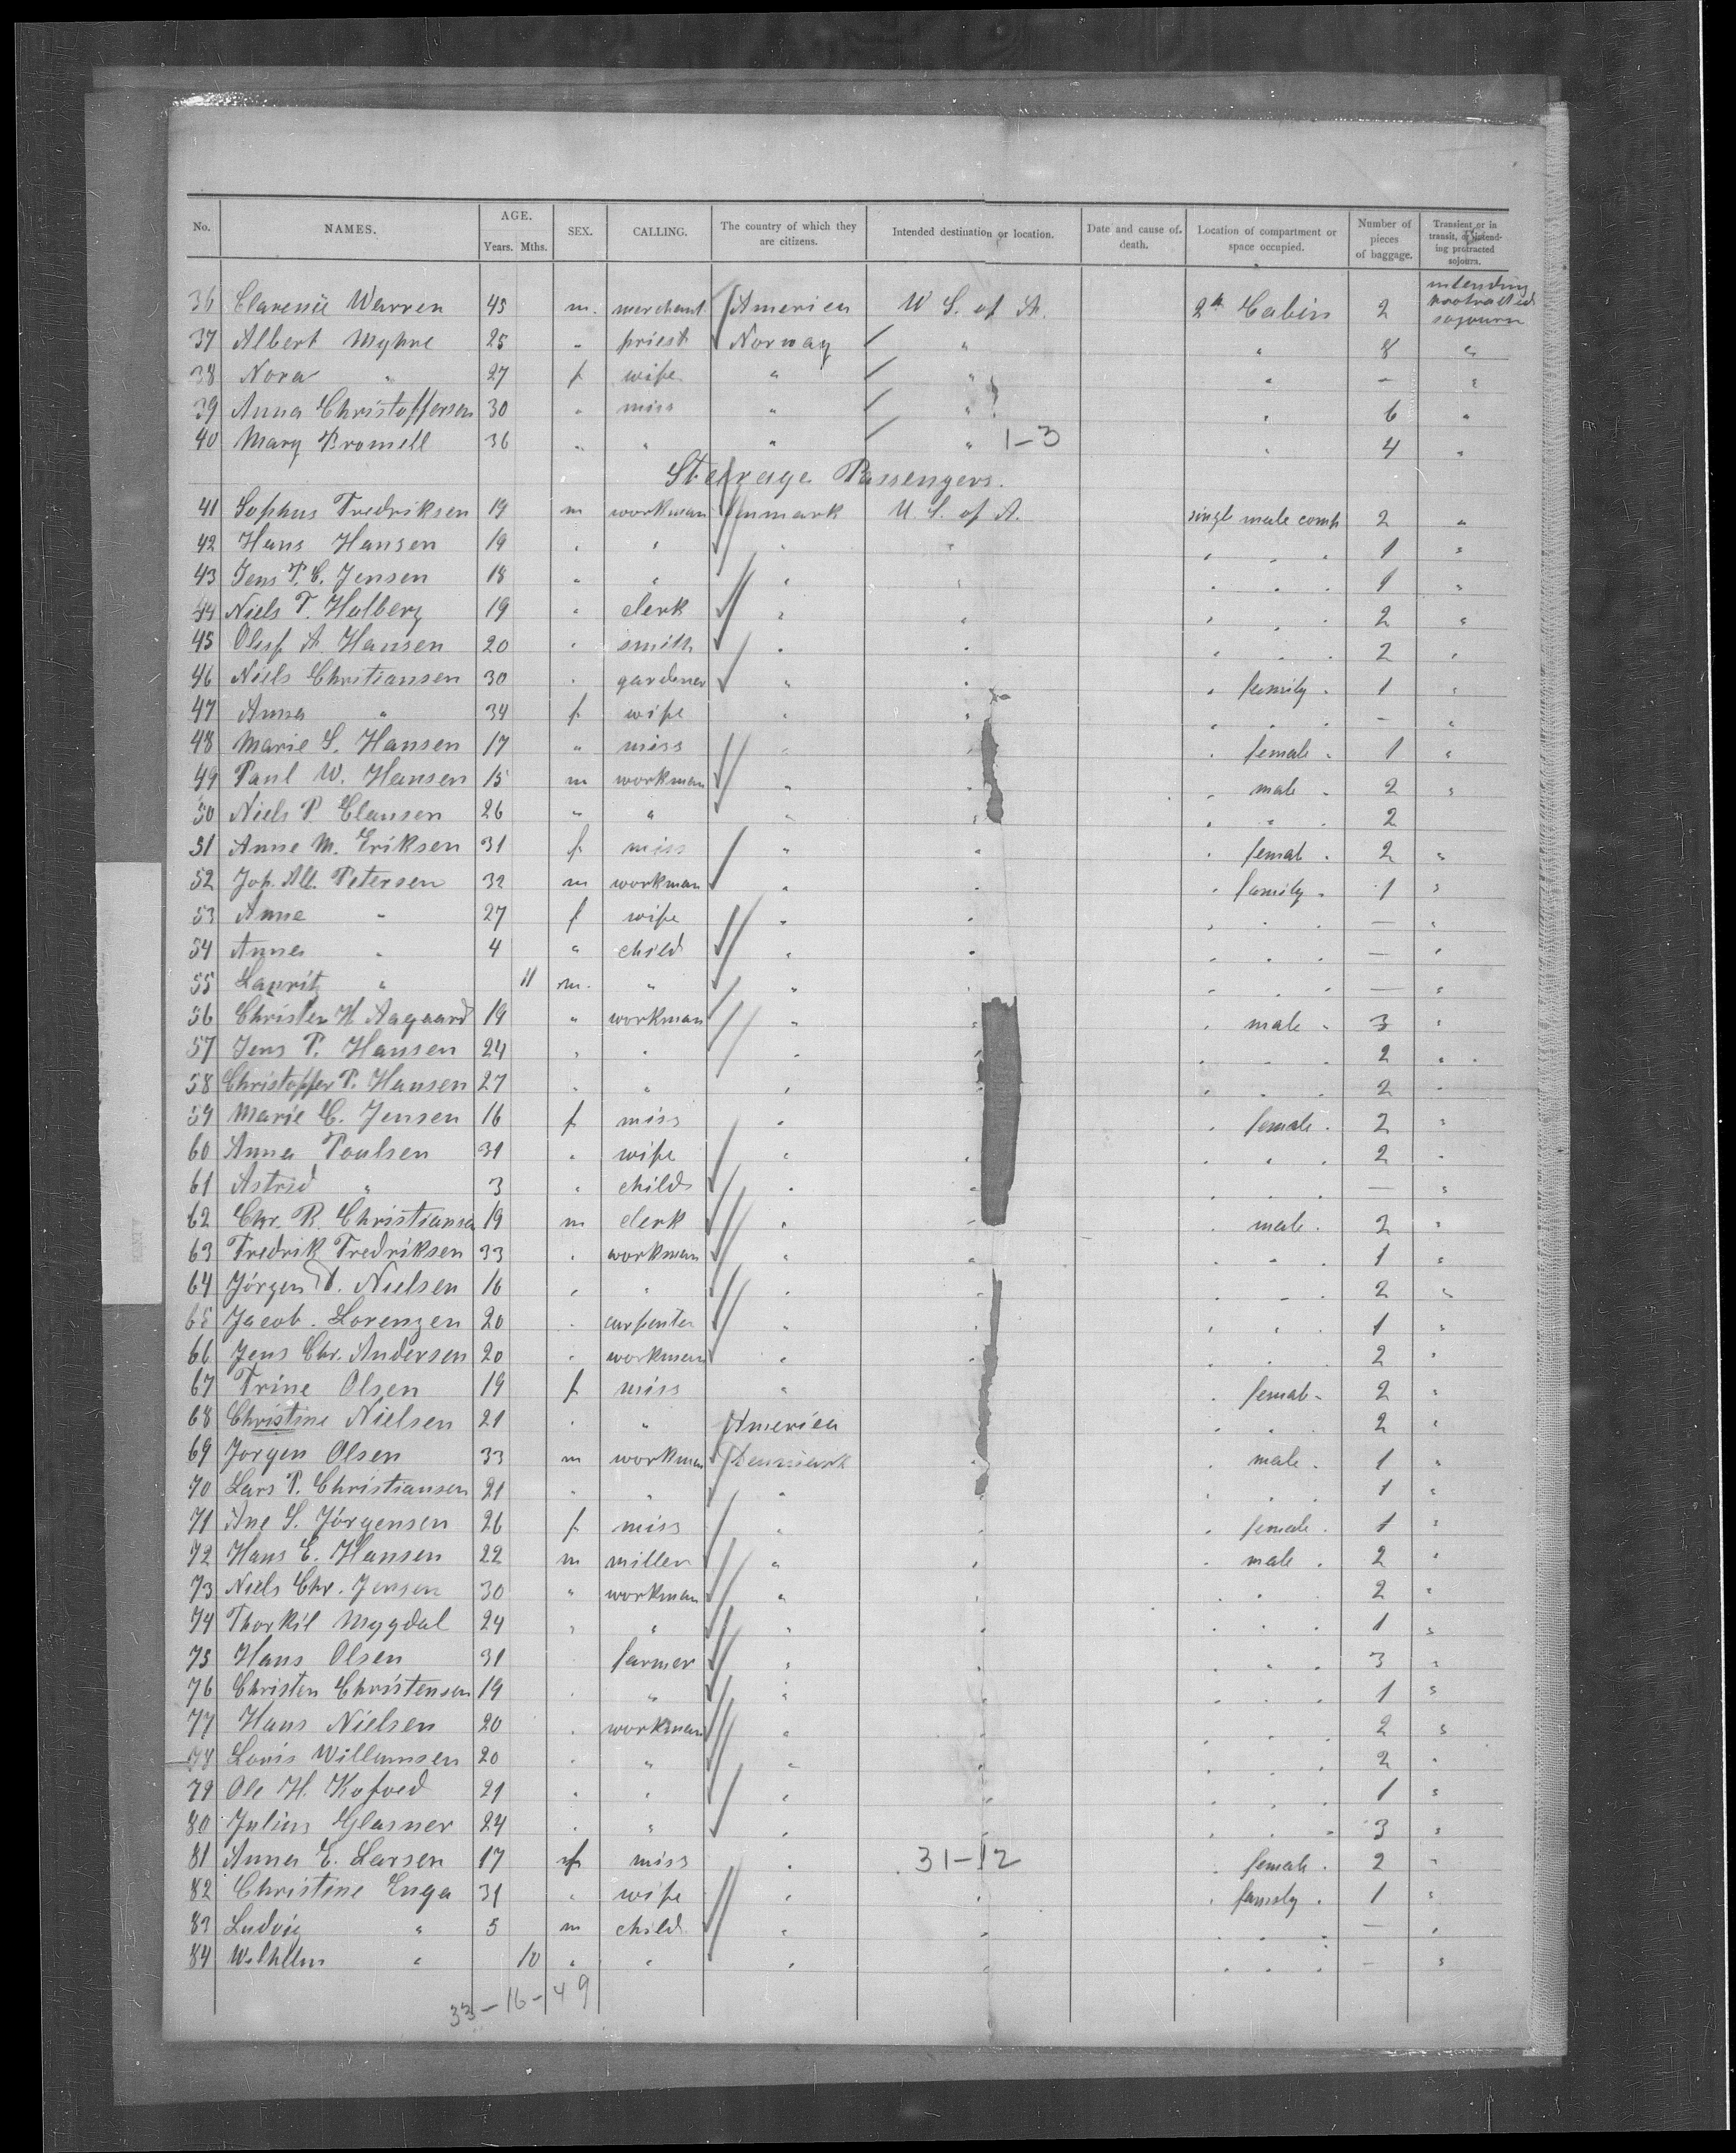 No. NAMES. AGE. Years. Mths. SEX. CALLING. The country of which they are citizens. Intended destination or location. Date and cause of death. Location of compartment or space occupied. Number of pieces of baggage. Transient or in transit, or intending protracted sojourn.
36 Clarence Warren 45 m. merchant America U S. of A. 2d Cabin 2 intending protracted sojourn
37 Albert Myhre 25 " priest Norway " " 8 "
38 Nora " 27 f wife " " " - "
39 Anna Christoffersen 30 " miss " " " 6 "
40 Mary Bromell 36 " " " " 1-3 " 4 "
Steerage Passengers.
41 Sophus Fredriksen 19 m workman Denmark U. S. of A. single male comp 2 "
42 Hans Hansen 19 " " " " " " " 1 "
43 Jens P. C. Jensen 18 " " " " " " " 1 "
44 Niels T. Holberg 19 " clerk " " " " " 2 "
45 Oluf A. Hansen 20 " smith " " " " " 2 "
46 Niels Christiansen 30 " gardener " " " family " 1 "
47 Anna " 34 f wife " " " " " - "
48 Marie S. Hansen 17 " miss " " " female " 1 "
49 Paul W. Hansen 15 m workman " " " male " 2 "
50 Niels P Clausen 26 " " " " " " 2
51 Anne M. Eriksen 31 f miss " " " female " 2 "
52 Joh. Alb. Petersen 32 m workman " " " family " 1 "
53 Anne " 27 f wife " " " " " - "
54 Anna " 4 " child " " " " " - "
55 Lauritz " 11 m. " " " " " " - "
56 Christen H Aagaard 19 " workman " " " male " 3 "
57 Jens P. Hansen 24 " " " " " " " 2 "
58 Christoffer P. Hansen 27 " " " " " " " 2 "
59 Marie C. Jensen 16 f miss " " female " 2 "
60 Anna Poulsen 31 " wife " " " " " 2 "
61 Astrid " 3 " child " " " " " - "
62 Chr. R. Christiansen 19 m clerk " " male " 2 "
63 Fredrik Fredriksen 33 " workman " " " " " 1 "
64 Jörgen P. Nielsen 16 " " " " " " " 2 "
65 Jacob. Lorenzen 20 " carpenter " " " " " 1 "
66 Jens Chr. Andersen 20 " workman " " " " " 2 "
67 Trine Olsen 19 f miss " " female " 2 "
68 Christine Nielsen 21 " " America " " 2 "
69 Jorgen Olsen 33 m workman Denmark " " male " 1 "
70 Lars P. Christiansen 21 " " " " " " " 1 "
71 Ane S. Jörgensen 26 f miss " " " female " 1 "
72 Hans E. Hansen 22 m miller " " " male " 2 "
73 Niels Chr. Jensen 30 " workman " " " " 2 "
74 Thorkil Mygdal 24 " " " " " " " 1 "
75 Hans Olsen 31 farmer " " " " " 3 "
76 Christen Christensen 19 " " " " " " " 1 "
77 Hans Nielsen 20 " workman " " " " " 2 "
78 Louis Willumsen 20 " " " " " " " 2 "
79 Ole H. Kofoed 21 " " " " " " " 1 "
80 Julius Glasner 24 " " " " " " " 3 "
81 Anna E. Larsen 17 f miss " 31-12 " female " 2 "
82 Christine Enga 31 " wife " " " family " 1 "
83 Ludvig " 5 m child " " " " " - "
84 Wilhelm " 10 " " " " " " " - "
33-16-49